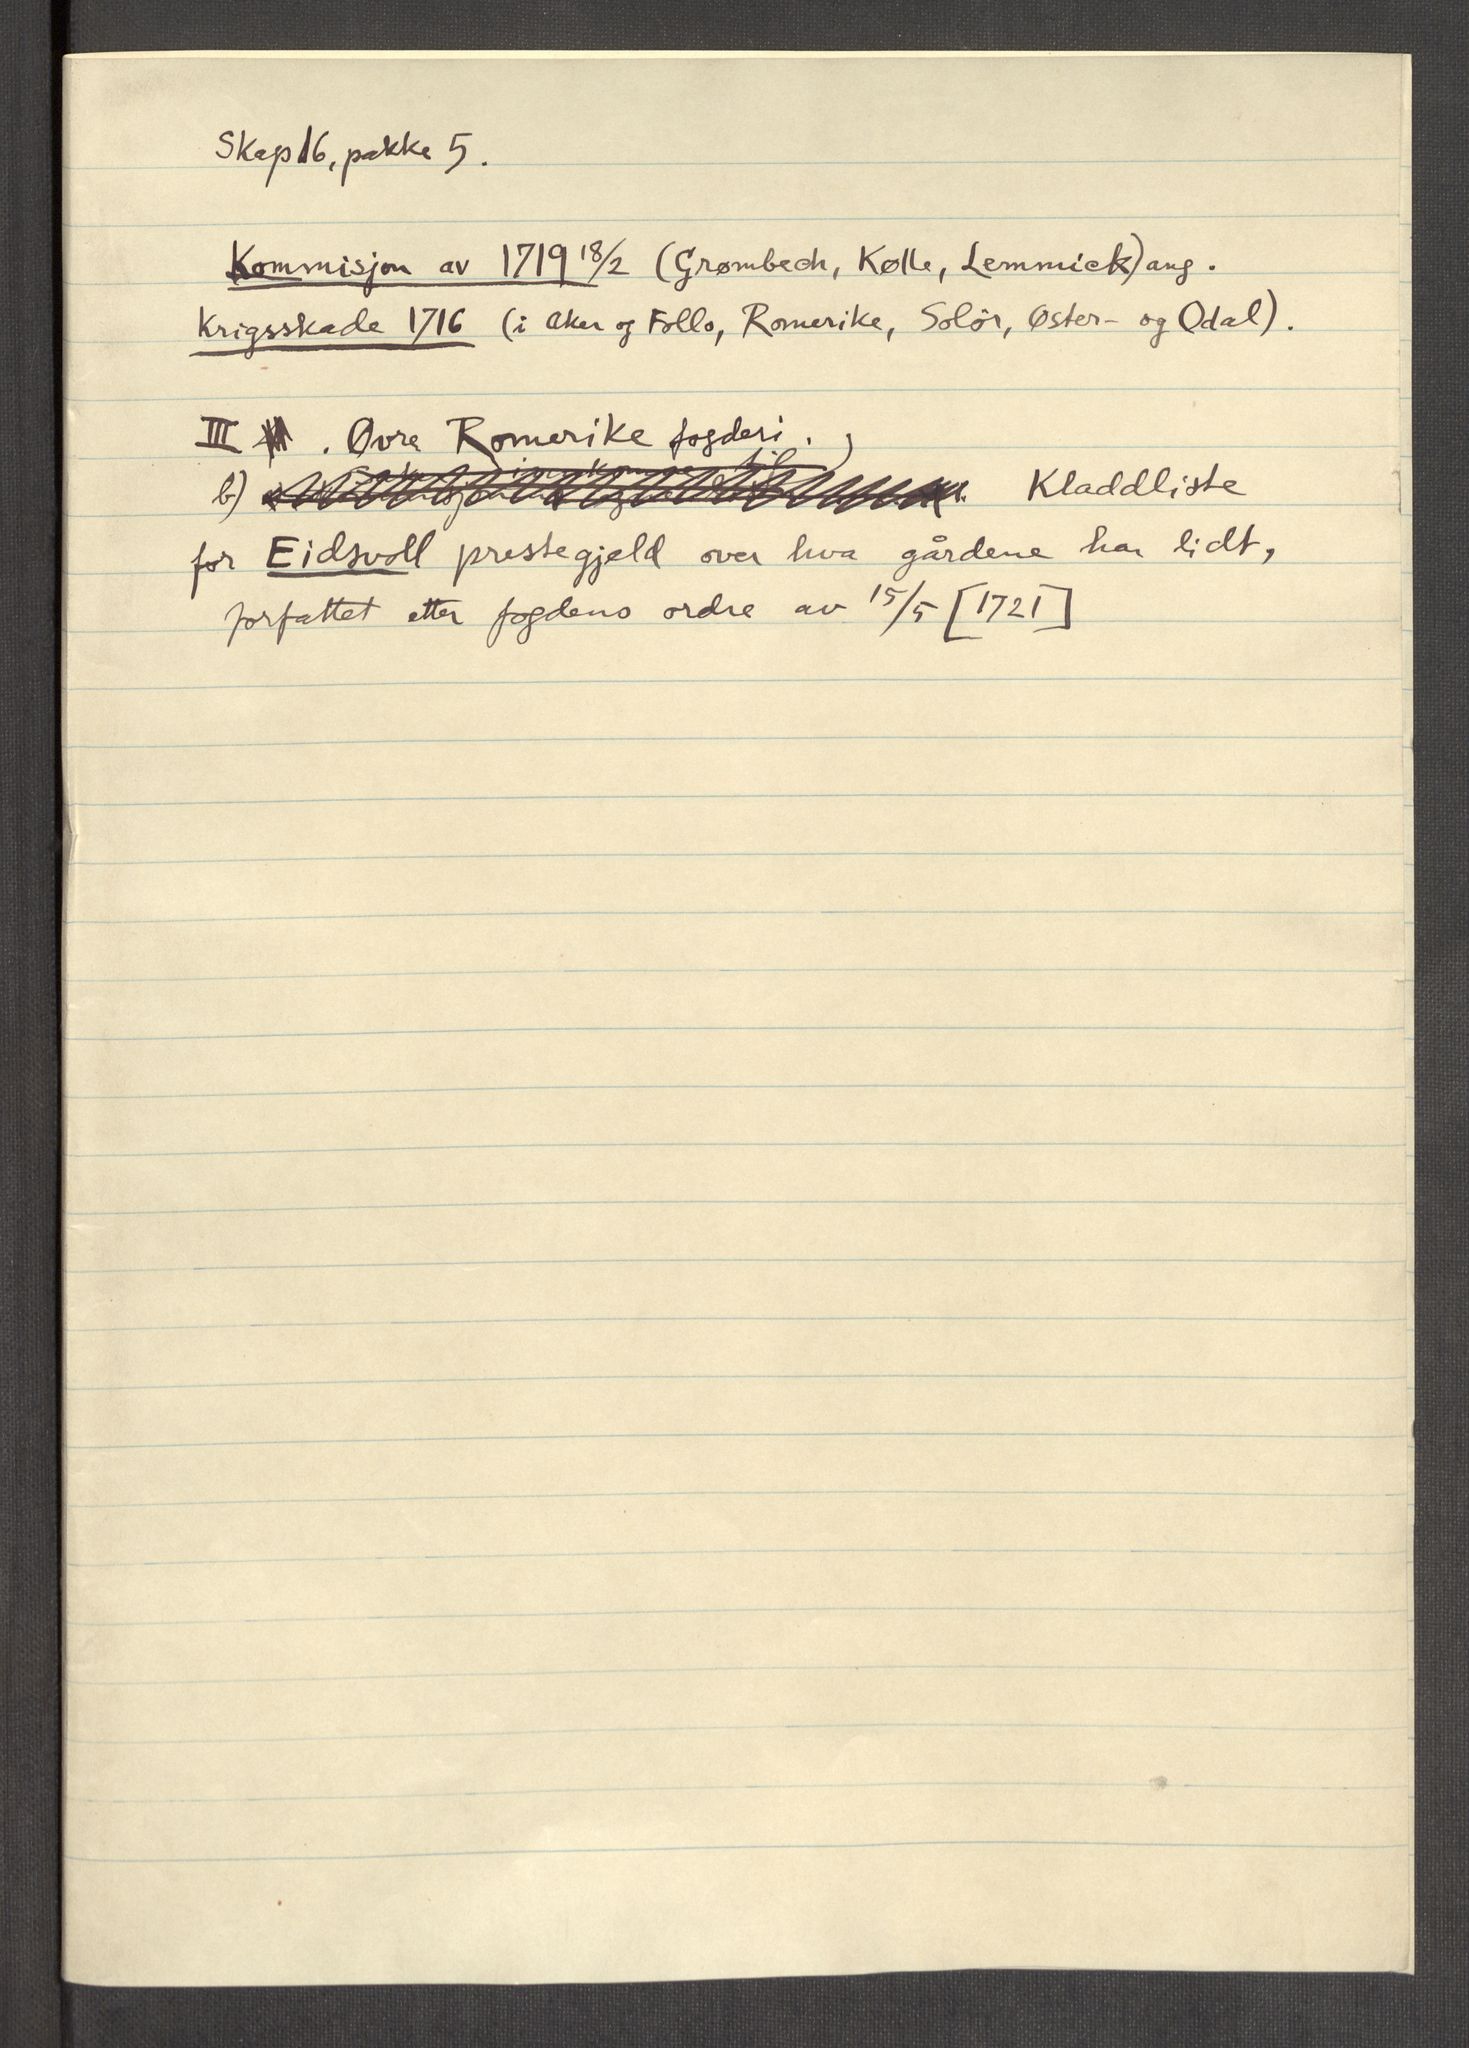 Skap 16, pakke 5.
Kommisjon av 1719 18/2 (Grømbech, Kølle, Lemmick) ang.
Krigsskade 1716 (i Aker og Follo, Romerike, Solør, Øster- og Odal).
III . Øvre Romerike fogderi.
b) Kladdliste
for Eidsvoll prestegjeld over hva gårdene har lidt,
forfattet etter fogdens ordre av 15/5 [1721]